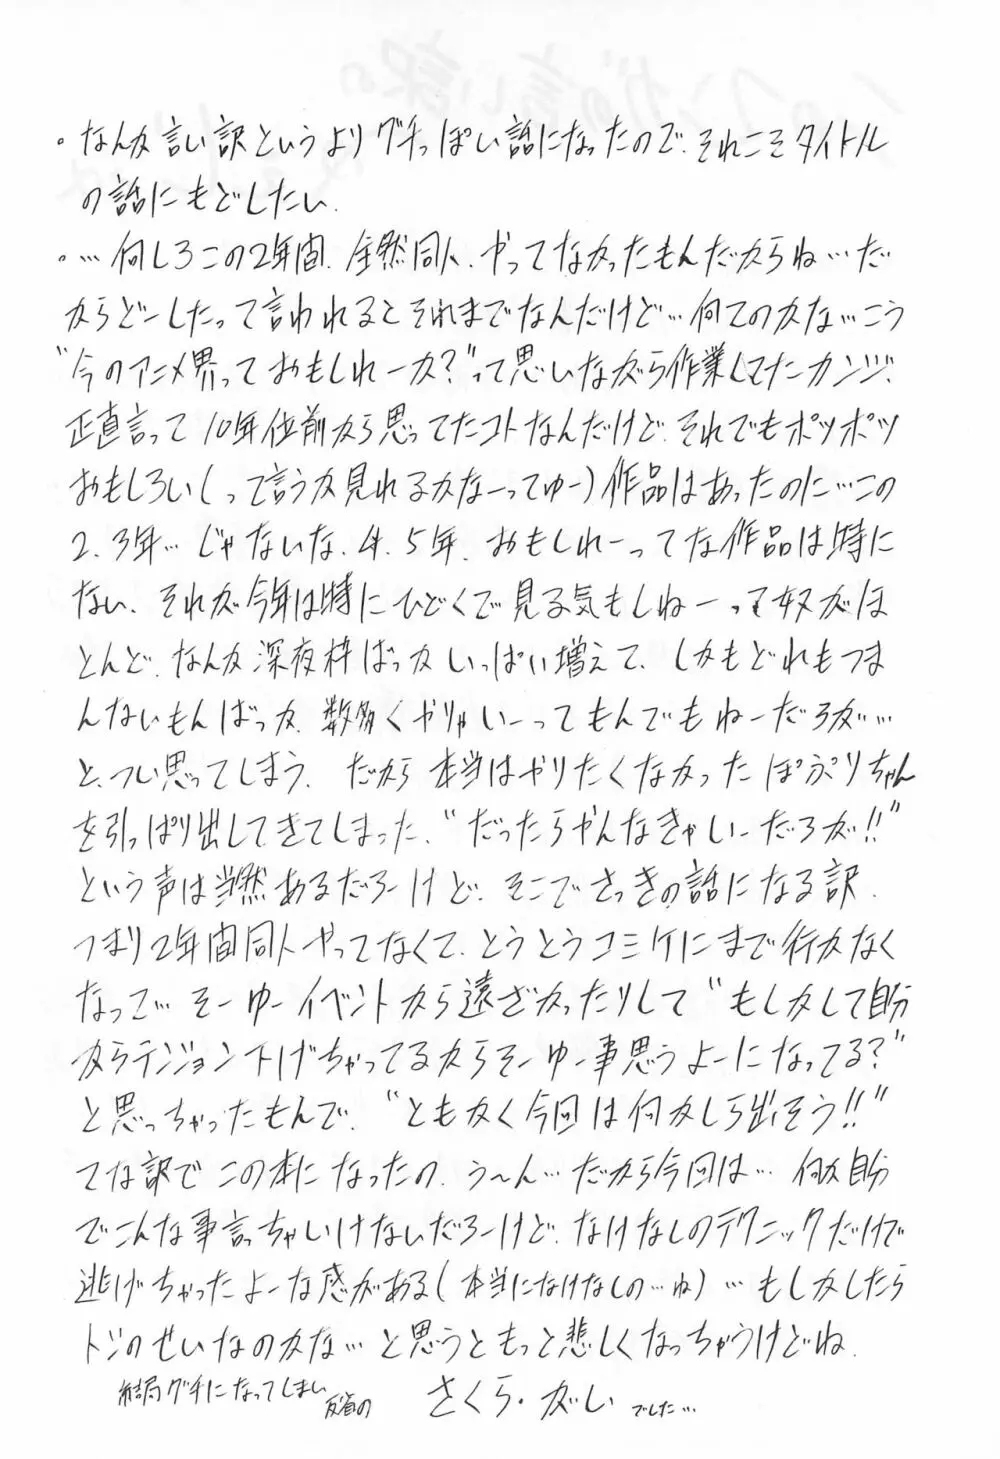 ・なんか言い訳というよりグチっぽい話になったので、それこそタイトル
の話にもどしたい。
・…何しろこの2年間、全然同人、やってなかったもんだからね…だ
からどーしたって言われるとそれまでなんだけど…何てのかな…こう
"今のアニメ界っておもしれーか?"って思いながら作業してたカンジ、
正直言って10年位前から思ってたコトなんだけど、それでもポツポツ
おもしろい(って言うか見れるかなーってゆー)作品はあったのに…この
2、3年…じゃないな、4、5年、おもしれーってな作品は特に
ない、それが今年は特にひどくて見る気もしねーって奴がほ
とんど、なんか深夜枠ばっかいっぱい増えて、しかもどれもつま
んないもんばっか、数多くやりゃいーってもんでもねーだろが…
と、つい思ってしまう、だから本当はやりたくなかったぽぷりちゃん
を引っぱり出してきてしまった、"だったらやんなきゃいーだろが!!"
という声は当然あるだろーけど、そこでさっきの話になる訳、
つまり2年間同人やってなくて、とうとうコミケにまで行かなく
なって…そーゆーイベントから遠ざかったりして"もしかして自分
からテンション下げちゃってるからそーゆー事思うよーになってる?"
と思っちゃったもんで、"ともかく今回は何かしら出そう!!"
てな訳でこの本になったの、う〜ん…だから今回は…何か自分
でこんな事言っちゃいけないだろーけど、なけなしのテクニックだけで
逃げちゃったよーな感がある(本当になけなしの…ね)…もしかしたら
トシのせいなのかな…と思うともっと悲しくなっちゃうけどね、
結局グチになってしまい
反省の さくら・がい でした…